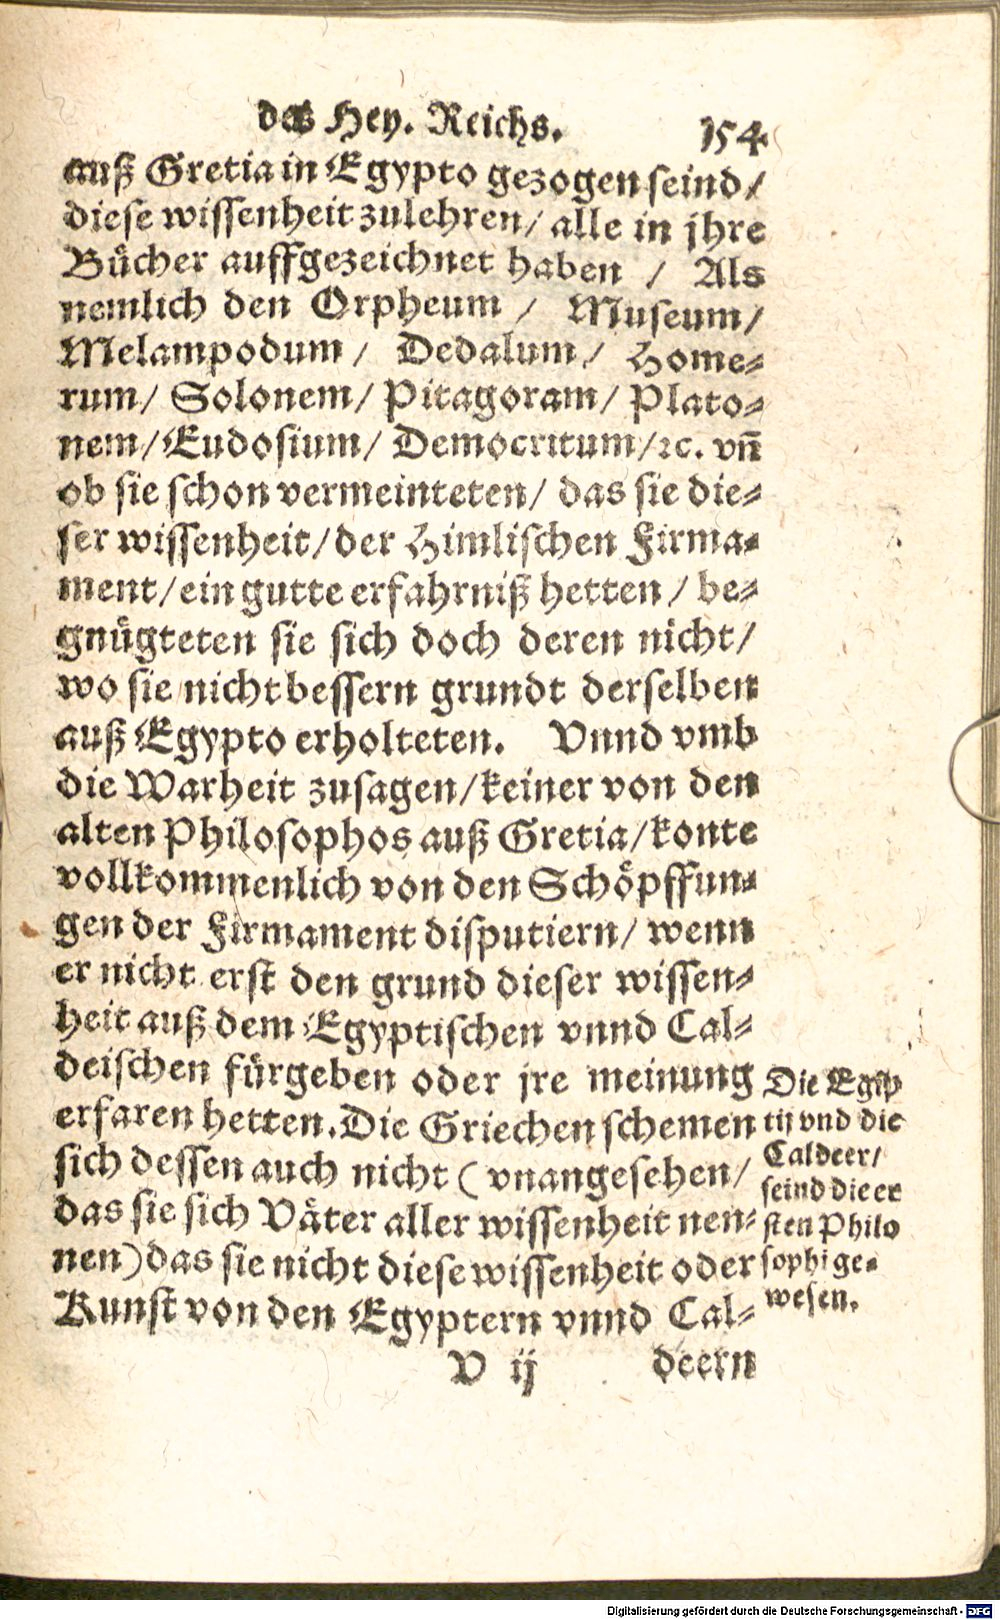 des Hey. Reichs. 154
auß Gretia in Egypto gezogen seind/
diese wissenheit zulehren/ alle in jhre
Bücher auffgezeichnet haben / Als
nemlich den Orpheum / Museum/
Melampodum/ Dedalum/ Home-
rum/ Solonem/ Pitagoram/ Plato-
nem/ Eudosium/ Democritum/ꝛc. vñ
ob sie schon vermeinteten/ das sie die-
ser wissenheit/ der Himlischen Firma-
ment/ ein gutte erfahrniß hetten / be-
gnügteten sie sich doch deren nicht/
wo sie nicht bessern grundt derselben
auß Egypto erholteten. Vnnd vmb
die Warheit zusagen/ keiner von den
alten Philosophos auß Gretia/ konte
vollkommenlich von den Schöpffun-
gen der Firmament disputiern/ wenn
er nicht erst den grund dieser wissen-
heit auß dem Egyptischen vnnd Cal-
deischen fürgeben oder jre meinung
erfaren hetten. Die Griechen schemen
sich dessen auch nicht ( vnangesehen/
das sie sich Väter aller wissenheit nen-
nen) das sie nicht diese wissenheit oder
Kunst von den Egyptern vnnd Cal-
V ij deern
Die Egip
tij vnd die
Caldeer/
seind die er
sten Philo
sophi ge-
wesen.
Digitalisierung gefördert durch die Deutsche Forschungsgemeinschaft - DFG